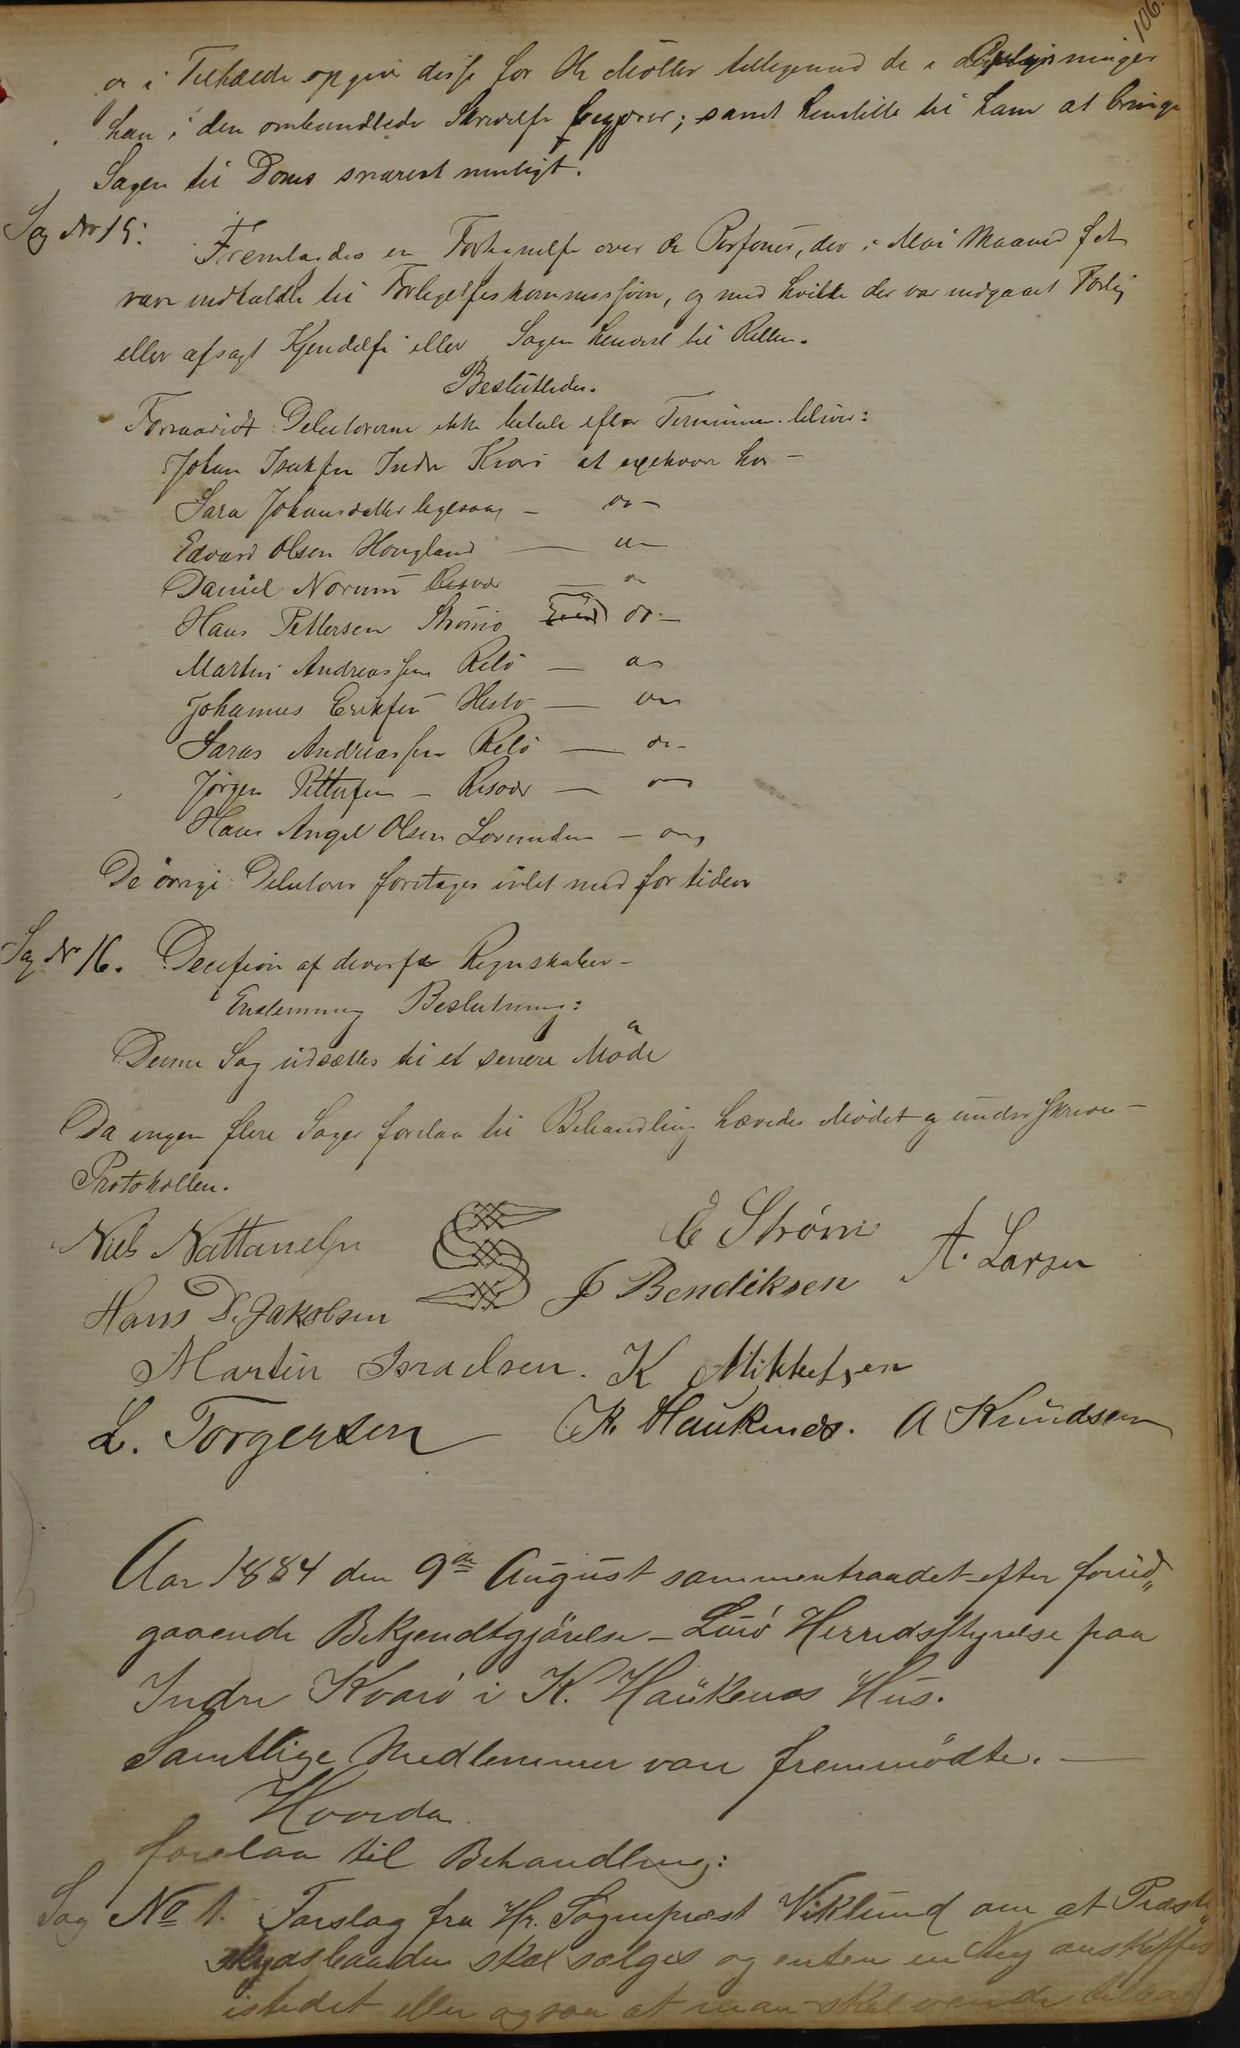 106.
og i Tilfælde opgive disse for Hr Møller tilligemed de Oplysninger
han i den omhandlede Skrivelse begjærer; samt henstille til ham at bringe
Sagen til Doms snarest muligt.
Sag No 15. Fremlagdes en Fortegnelse over de Personer, der i Mai Maaned
vare indkaldte til Forligelseskommissjon, og med hvilke der var indgaaet Forlig
eller afsagt Kjendelse eller Sagen henvist til Retten.
Besluttedes.
Forsaavidt Debitorerne ikke betale efter Terminen bliver:
Johan Isaksen Indre Kvarø at exekvere hos -
Sara Johansdatter ligesaa - do -
Edvard Olsen Hougland - do -
Daniel Norum - do
Hans Pettersen do -
Martin Andreassen Kelø - do
Johannes Eriksen Hestø - do
Andreassen Kelø - do -
Jørgen Pettersen - Risvær - do
Hans Angel Olsen Lovunden - do
De övrige Debitorer foretages intet med for tiden
Sag No 16. Decision af diverse Regnskaber -
Enstemmig Beslutning:
Denne Sag udsættes til et senere Möde
Da ingen flere Sager forelaa til Behandling hævedes Mödet og underskreves -
Protokollen.
Niels Nattanelsen E Strøm A. Larsen
Hans D. Jakobsen J Bendiksen
Martin Israelsen. K Mikkelsen
L. Torgersen K. Haukenes. A Knudsen
Aar 1884 den 9de August sammentraadet efter forud„
gaaende Bekjendtgjörelse - Lurö Herredsstyrelse paa
Indre Kvarö i K. Haukenes Hus.
Samtlige Medlemmer vare fremmödte. -
Hvorda
forelaa til Behandling:
Sag No 1. Forslag fra Hr. Sognepræst Viklund om at Præste„
skydsbaaden skal sælges og enten en Ny anskaffes
istedet eller ogsaa at man skal vende tilbage